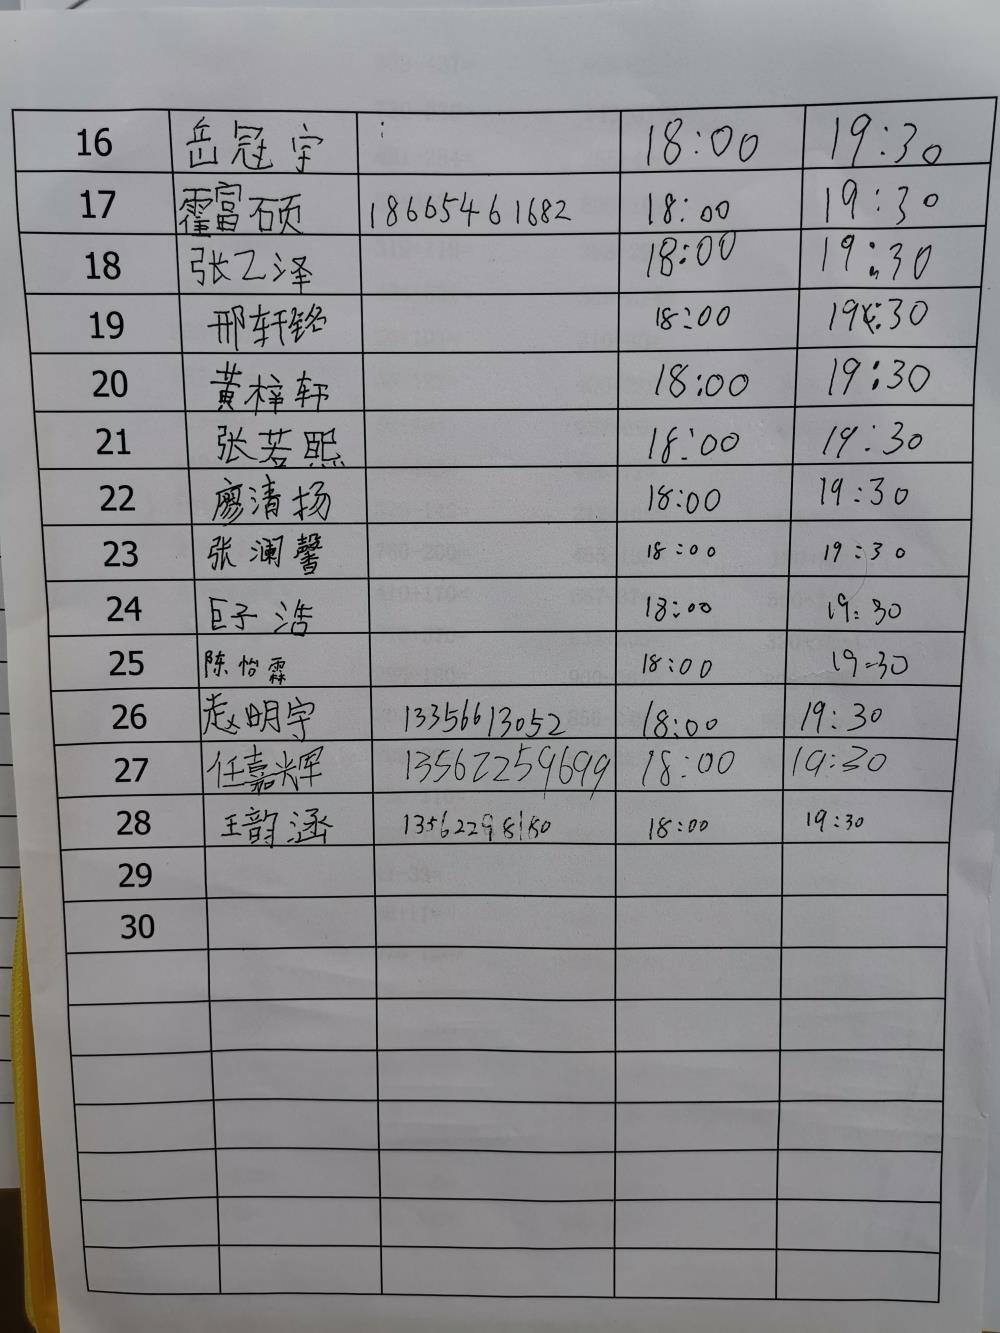 16 岳冠宇 18:00 19:30
17 霍富硕 18665461682 18:00 19:30
18 张乙泽 18:00 19:30
19 邢轩铭 18:00 19:30
20 黄梓轩 18:00 19:30
21 张若熙 18:00 19:30
22 廖清扬 18:00 19:30
23 张澜馨 18:00 19:30
24 巨子浩 18:00 19:30
25 陈怡霖 18:00 19:30
26 赵明宇 13356613052 18:00 19:30
27 任嘉辉 13562259699 18:00 19:30
28 王韵涵 13562298180 18:00 19:30
29
30